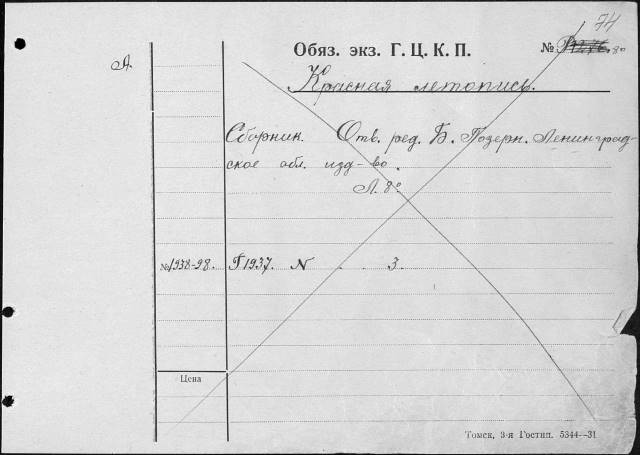 74
Обяз. экз. Г. Ц. К. П. №
80
А
Красная летопись.
Сборник. Отв. ред. Б. Позерн. Ленинград-
ское обл. изд-во.
Л. 8°
№1938-98. Г1937. N . . 3.
Цена
Томск, 3-я Гостип. 5344—31